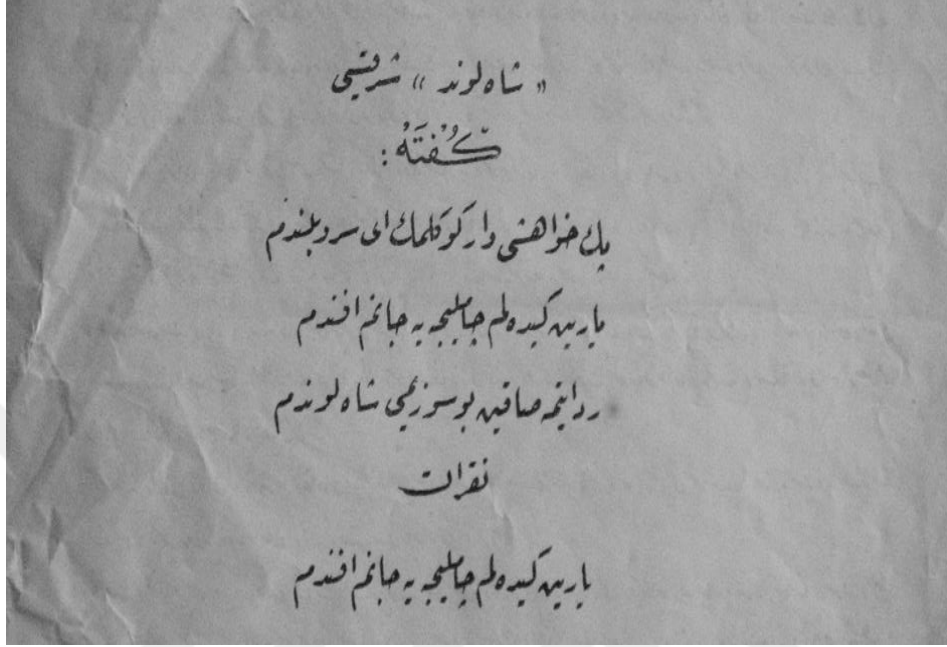 « شاه لوند » شرقیسی
كُفْتَهْ :
پك خواهشی وار كوكلمك ای سرو بلندم
یارین كیده لم چاملیجه یه جانم افندم
رد ایتمه صاقین بو سوزیمی شاه لوندم
نقرات
یارین كیده لم چاملیجه یه جانم افندم